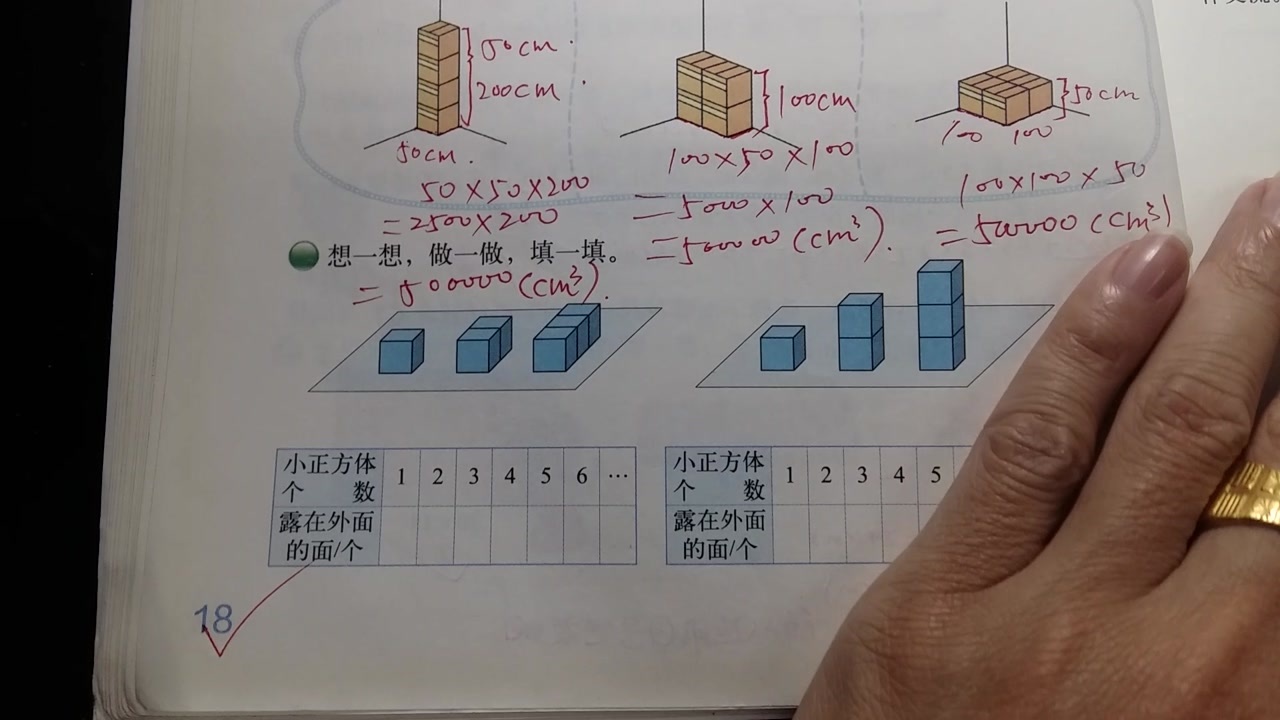 50cm
200cm
50cm.
100cm
50cm
100 100
50×50×200
=2500×200
=500000(cm³).
100×50×100
=5000×100
=500000(cm³).
100×100×50
=500000(cm³)
想一想，做一做，填一填。
小正方体个数 1 2 3 4 5 6 …
露在外面的面/个
小正方体个数 1 2 3 4 5
露在外面的面/个
18